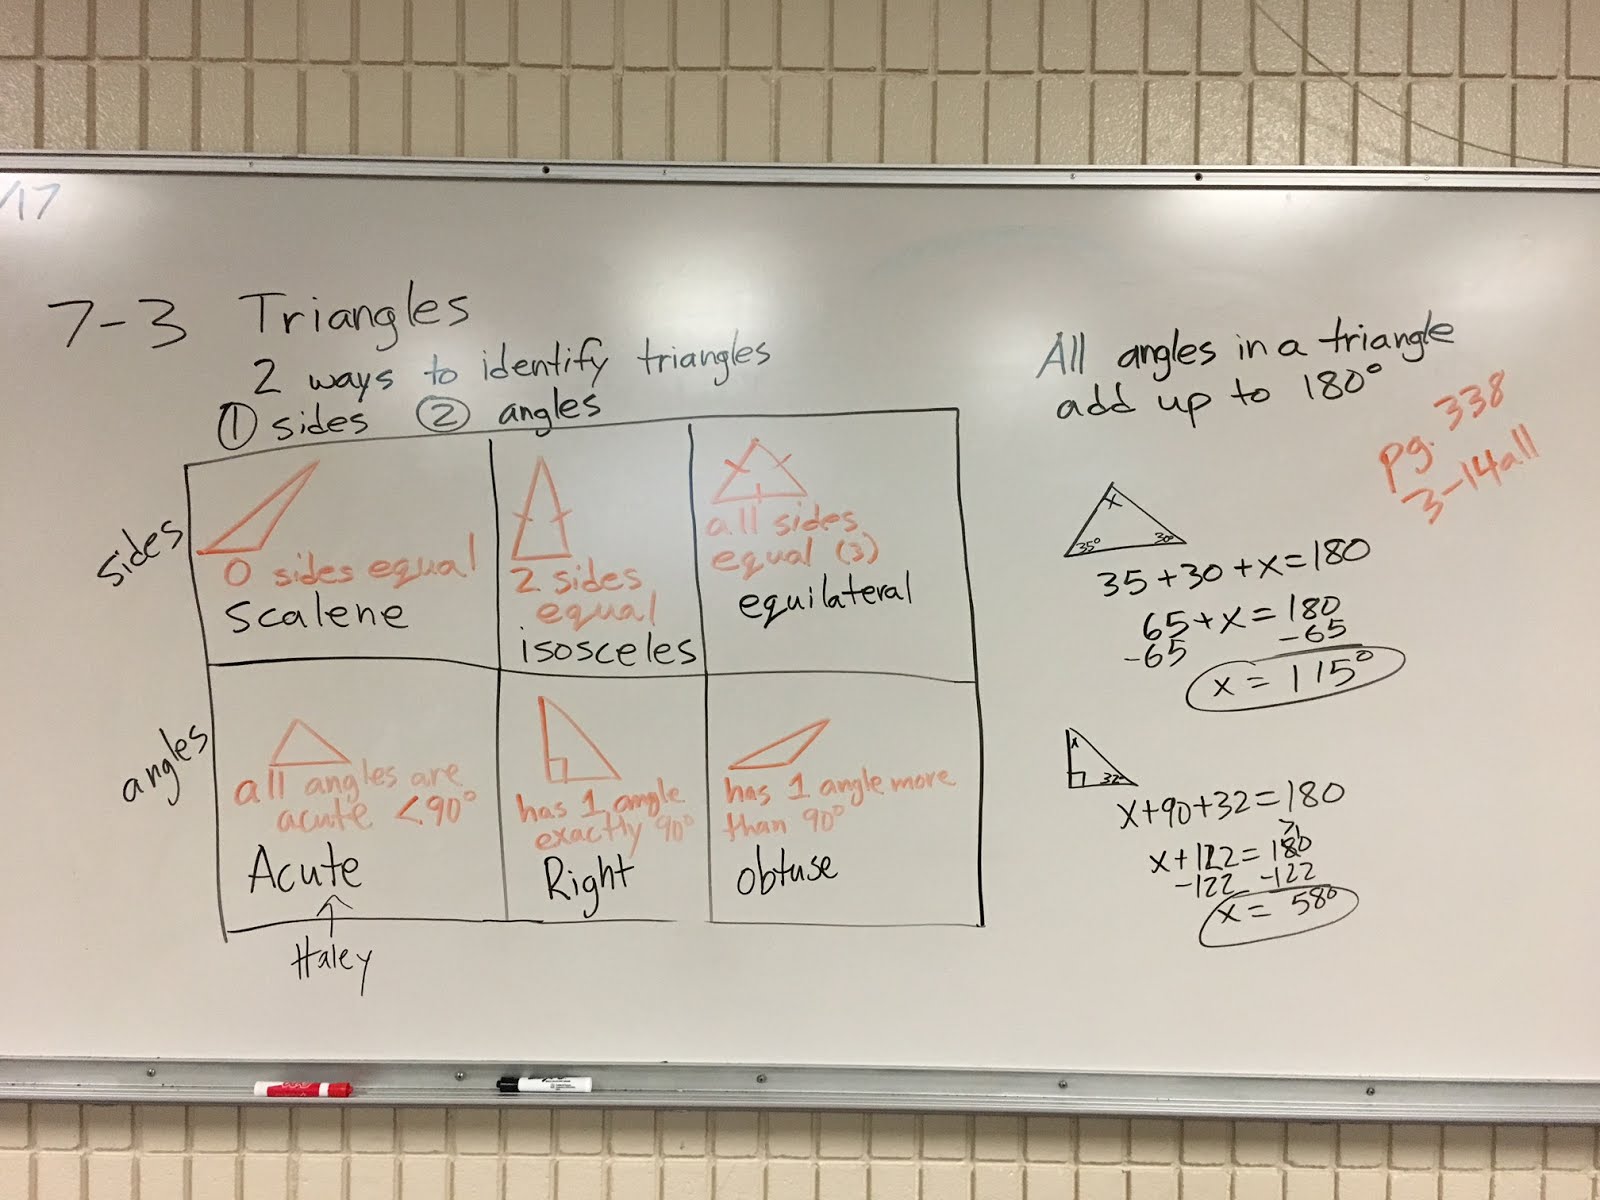 /17
7-3 Triangles
2 ways to identify triangles
① sides ② angles
sides
0 sides equal
scalene
2 sides
equal
isosceles
all sides
equal (3)
equilateral
angles
all angles are
acute <90°
Acute
Haley
has 1 angle
exactly 90°
Right
has 1 angle more
than 90°
obtuse
All angles in a triangle
add up to 180°
pg. 338
3-14 all
x
35° 30°
35+30+x=180
65+x=180
-65 -65
x=115°
x
32°
x+90+32=180
x+122=180
-122 -122
x=58°